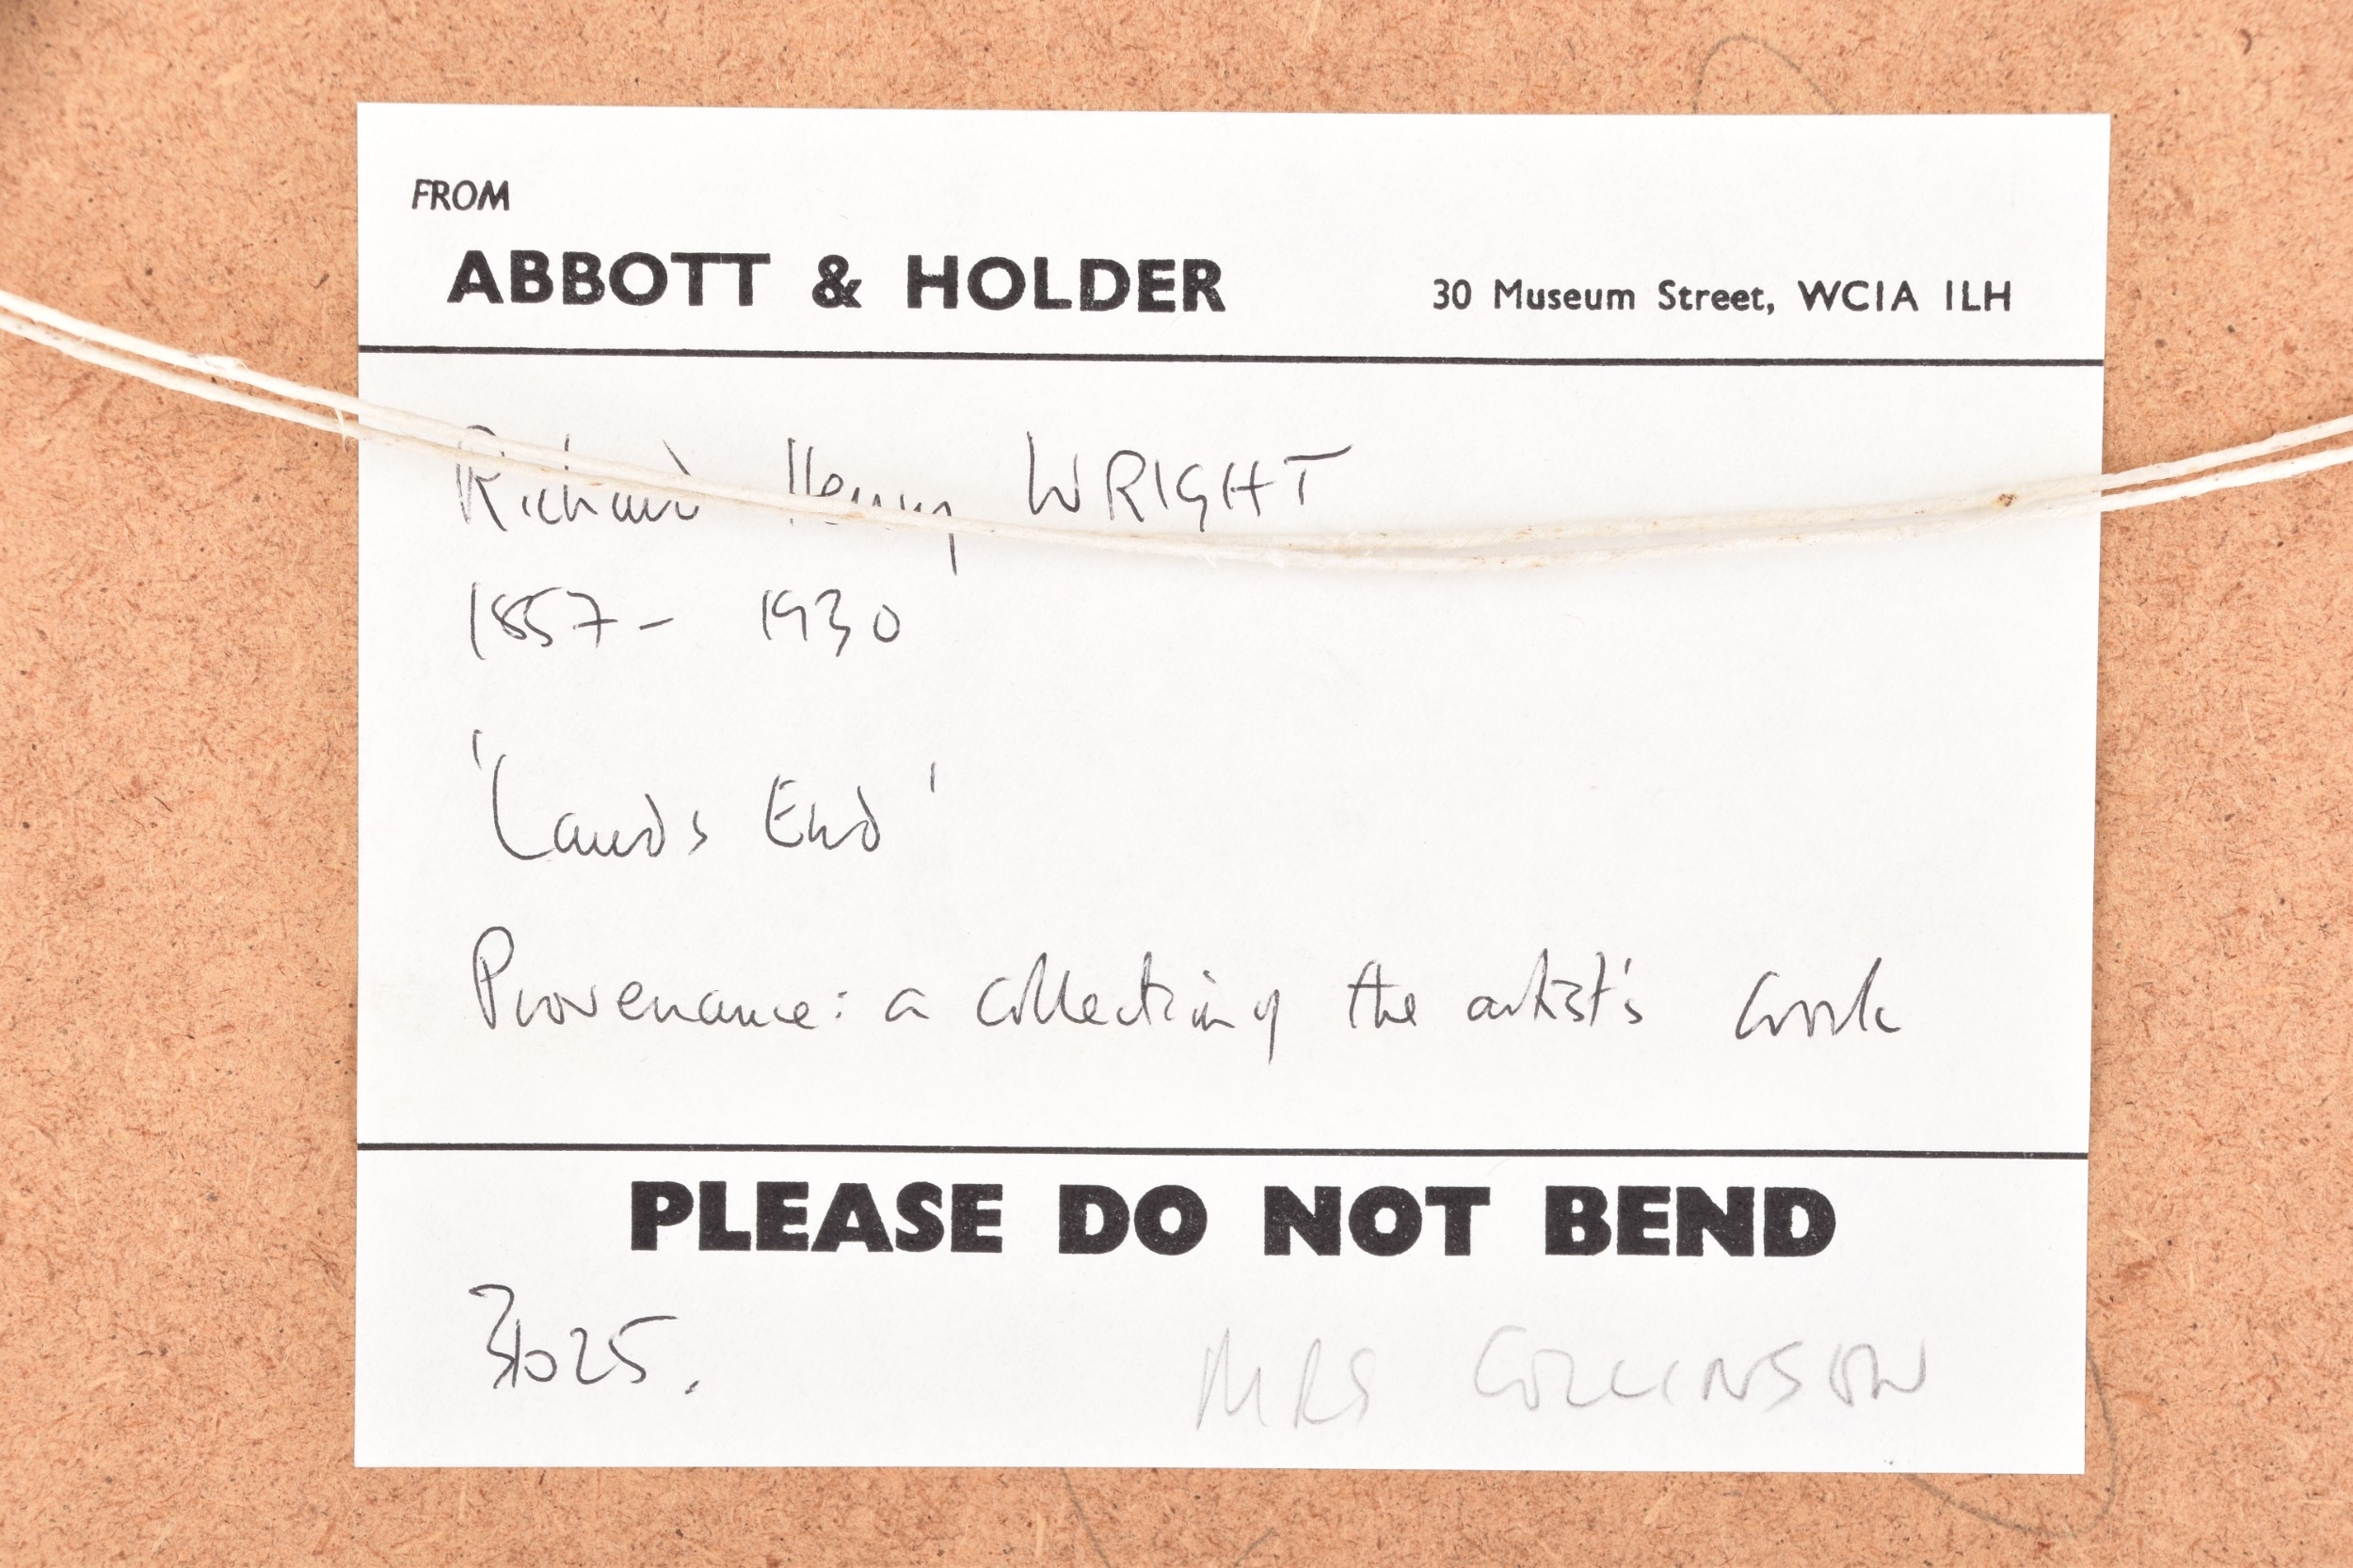 FROM
ABBOTT & HOLDER 30 Museum Street, WC1A 1LH
Richard Henry WRIGHT
1857- 1930
'Lands End'
Provenance: a collection of the artist's work
PLEASE DO NOT BEND
MRS COLLINSON